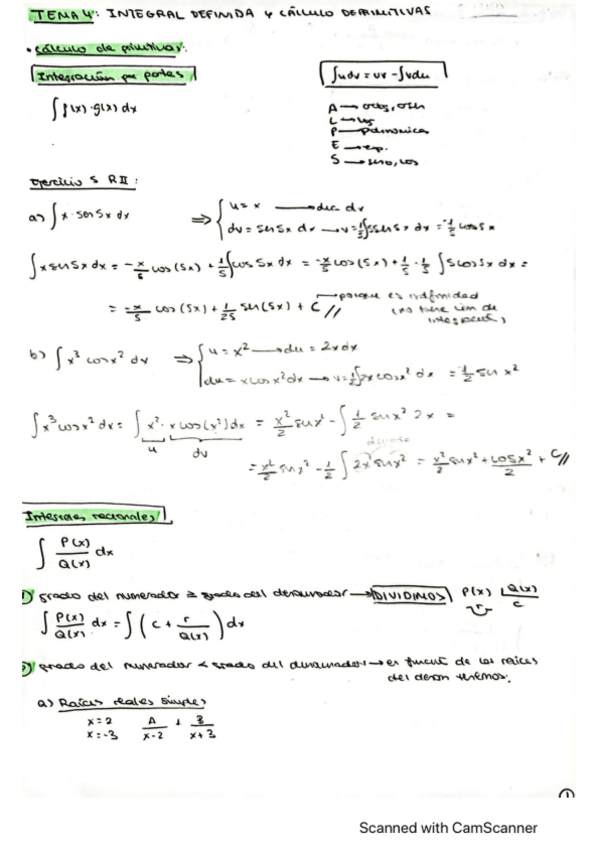 TEMA 4: INTEGRAL DEFINIDA Y CÁLCULO DE PRIMITIVAS
• Cálculo de primitivas:
Integración por partes
∫udv = uv - ∫vdu
∫f(x)·g(x) dx
A → arcos, arsen
L → log
P → polinomica
E → exp.
S → seno, cos
Ejercicio 5 RII:
a) ∫x·sen5x dx ⇒ { u = x → du = dx
dv = sen5x dx → v = 1/5∫5sen5x dx = -1/5 cos5x
∫x sen5x dx = -x/5 cos(5x) + 1/5∫cos5x dx = -x/5 cos(5x) + 1/5 · 1/5 ∫5cos5x dx =
= -x/5 cos(5x) + 1/25 sen(5x) + C // → porque es indefinida
(no tiene lím de integración)
b) ∫x³ cosx² dx ⇒ { u = x² → du = 2x dx
du = x cosx² dx → v = 1/2∫2x cosx² dx = 1/2 sen x²
∫x³cosx² dx = ∫x² · x cos(x²) dx = x²/2 senx² - ∫1/2 senx² 2x =
u dv
= x²/2 senx² - 1/2 ∫2x senx² = x²/2 senx² + cosx²/2 + C //
Integrales racionales
∫P(x)/Q(x) dx
1) grado del numerador ≥ grado del denominador → DIVIDIMOS P(x) | Q(x)
r C
∫P(x)/Q(x) dx = ∫(C + r/Q(x)) dx
2) grado del numerador < grado del denominador → en función de las raíces
del denom tenemos:
a) Raíces reales simples
x = 2 A/x-2 + B/x+3
x = -3
1
Scanned with CamScanner